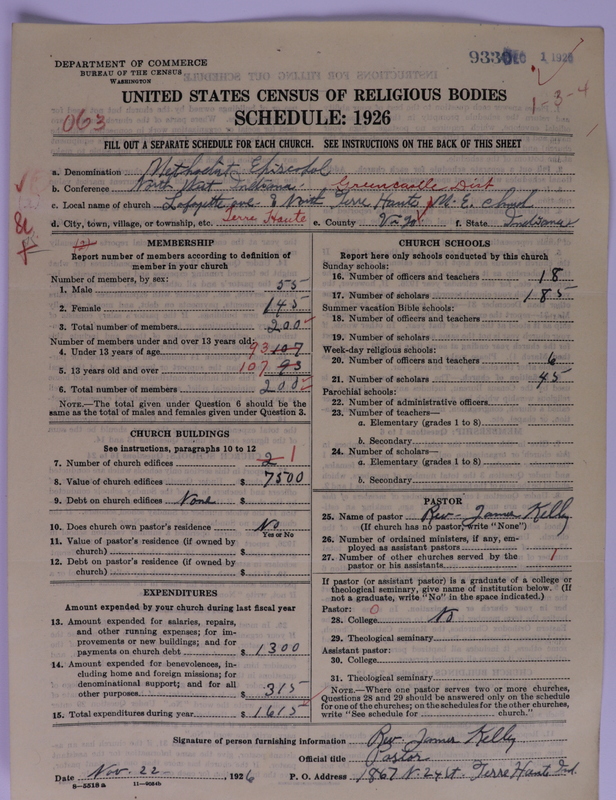 DEPARTMENT OF COMMERCE
BUREAU OF THE CENSUS
WASHINGTON
9330
1 1926
UNITED STATES CENSUS OF RELIGIOUS BODIES
1-3-4
063
SCHEDULE: 1926
FILL OUT A SEPARATE SCHEDULE FOR EACH CHURCH. SEE INSTRUCTIONS ON THE BACK OF THIS SHEET
a. Denomination Methodist Episcopal
b. Conference North West Indiana. Greencastle Dist
c. Local name of church Lafayette ave & North Terre Haute M. E. Church
d. City, town, village, or township, etc. Terre Haute e. County Vigo f. State Indiana
MEMBERSHIP
Report number of members according to definition of
member in your church
Number of members, by sex:
1. Male 55
2. Female 145
3. Total number of members 200
Number of members under and over 13 years old:
4. Under 13 years of age 93 107
5. 13 years old and over 107 93
6. Total number of members 200
NOTE.—The total given under Question 6 should be the
same as the total of males and females given under Question 3.
CHURCH BUILDINGS
See instructions, paragraphs 10 to 12
7. Number of church edifices 2 1
8. Value of church edifices $ 7500
9. Debt on church edifices None $
10. Does church own pastor's residence No
Yes or No
11. Value of pastor's residence (if owned by
church) $
12. Debt on pastor's residence (if owned by
church) $
EXPENDITURES
Amount expended by your church during last fiscal year
13. Amount expended for salaries, repairs,
and other running expenses; for im-
provements or new buildings; and for
payments on church debt $ 1300
14. Amount expended for benevolences, in-
cluding home and foreign missions; for
denominational support; and for all
other purposes $ 315
15. Total expenditures during year $ 1615
CHURCH SCHOOLS
Report here only schools conducted by this church
Sunday schools:
16. Number of officers and teachers 18
17. Number of scholars 185
Summer vacation Bible schools:
18. Number of officers and teachers
19. Number of scholars
Week-day religious schools:
20. Number of officers and teachers 6
21. Number of scholars 45
Parochial schools:
22. Number of administrative officers
23. Number of teachers—
a. Elementary (grades 1 to 8)
b. Secondary
24. Number of scholars—
a. Elementary (grades 1 to 8)
b. Secondary
PASTOR
25. Name of pastor Rev. James Kelly
(If church has no pastor, write "None")
26. Number of ordained ministers, if any, em-
ployed as assistant pastors
27. Number of other churches served by the
pastor or his assistants 1
If pastor (or assistant pastor) is a graduate of a college or
theological seminary, give name of institution below. (If
not a graduate, write "No" in the space indicated.)
Pastor: 0
28. College No
29. Theological seminary
Assistant pastor:
30. College
31. Theological seminary
NOTE.—Where one pastor serves two or more churches,
Questions 28 and 29 should be answered only on the schedule
for one of the churches; on the schedules for the other churches,
write "See schedule for church."
Signature of person furnishing information Rev. James Kelly
Official title Pastor
Date Nov. 22, 1926 P. O. Address 1867 N. 24 St. Terre Haute Ind.
8—5518a 11—9084b